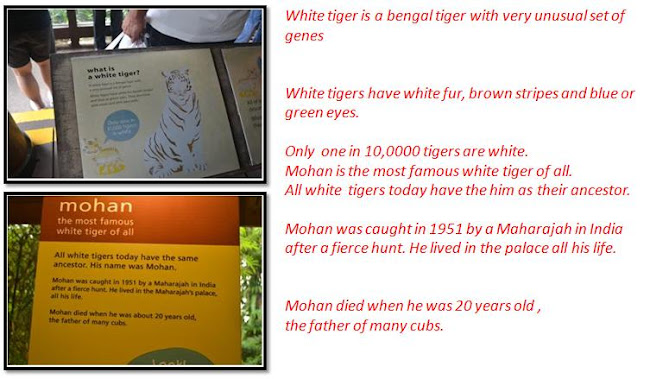 what is
a white tiger?
mohan
the most famous
white tiger of all
All white tigers today have the same
ancestor. His name was Mohan.
Mohan was caught in 1951 by a Maharajah in India
after a fierce hunt. He lived in the Maharajah's palace,
all his life.
Mohan died when he was about 20 years old,
the father of many cubs.
Look!
White tiger is a bengal tiger with very unusual set of
genes
White tigers have white fur, brown stripes and blue or
green eyes.
Only one in 10,0000 tigers are white.
Mohan is the most famous white tiger of all.
All white tigers today have the him as their ancestor.
Mohan was caught in 1951 by a Maharajah in India
after a fierce hunt. He lived in the palace all his life.
Mohan died when he was 20 years old ,
the father of many cubs.